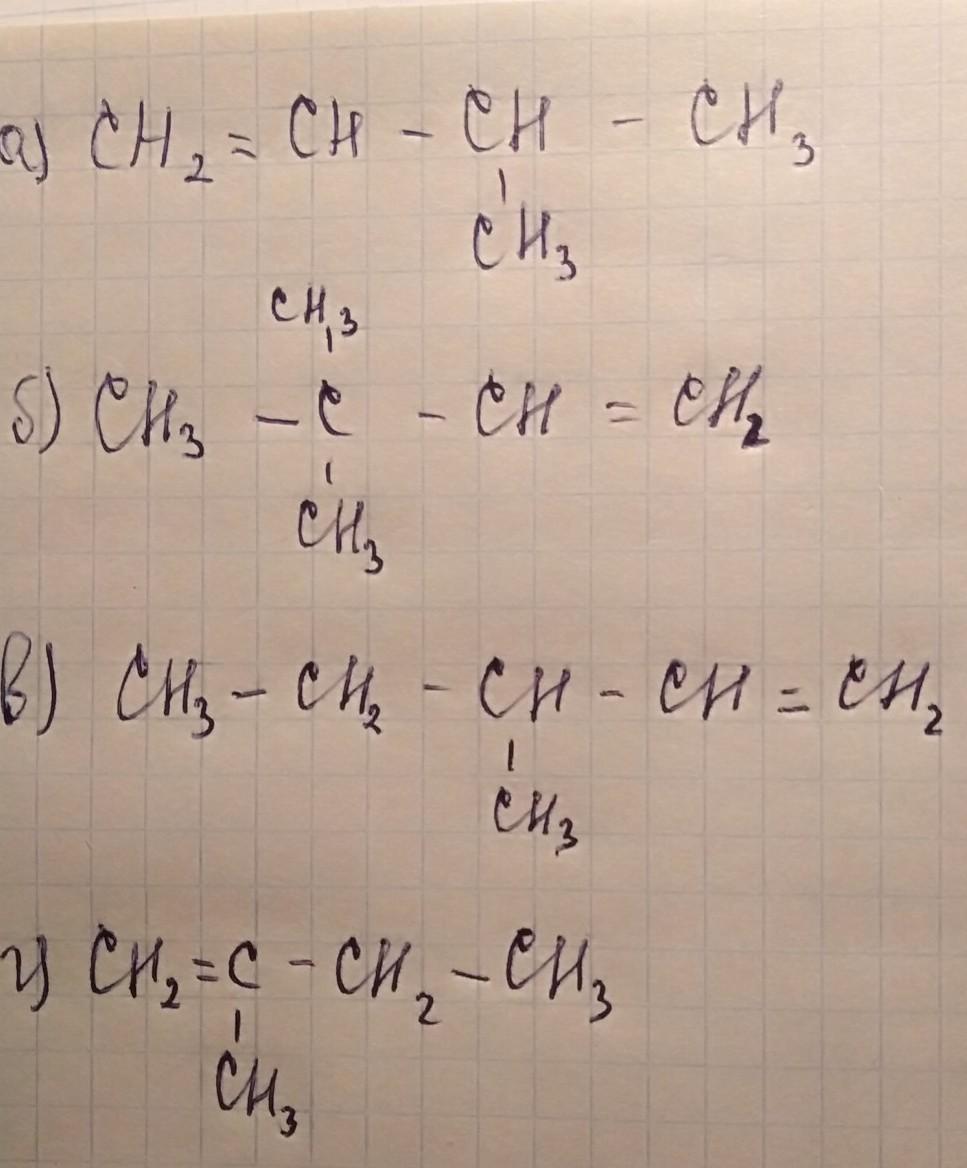 а) CH₂ = CH – CH – CH₃
CH₃
CH₃
б) CH₃ – C – CH = CH₂
CH₃
в) CH₃ – CH₂ – CH – CH = CH₂
CH₃
г) CH₂ = C – CH₂ – CH₃
CH₃